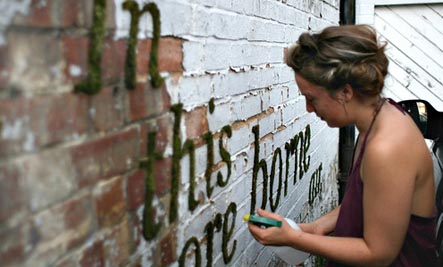 in
this borne
are or